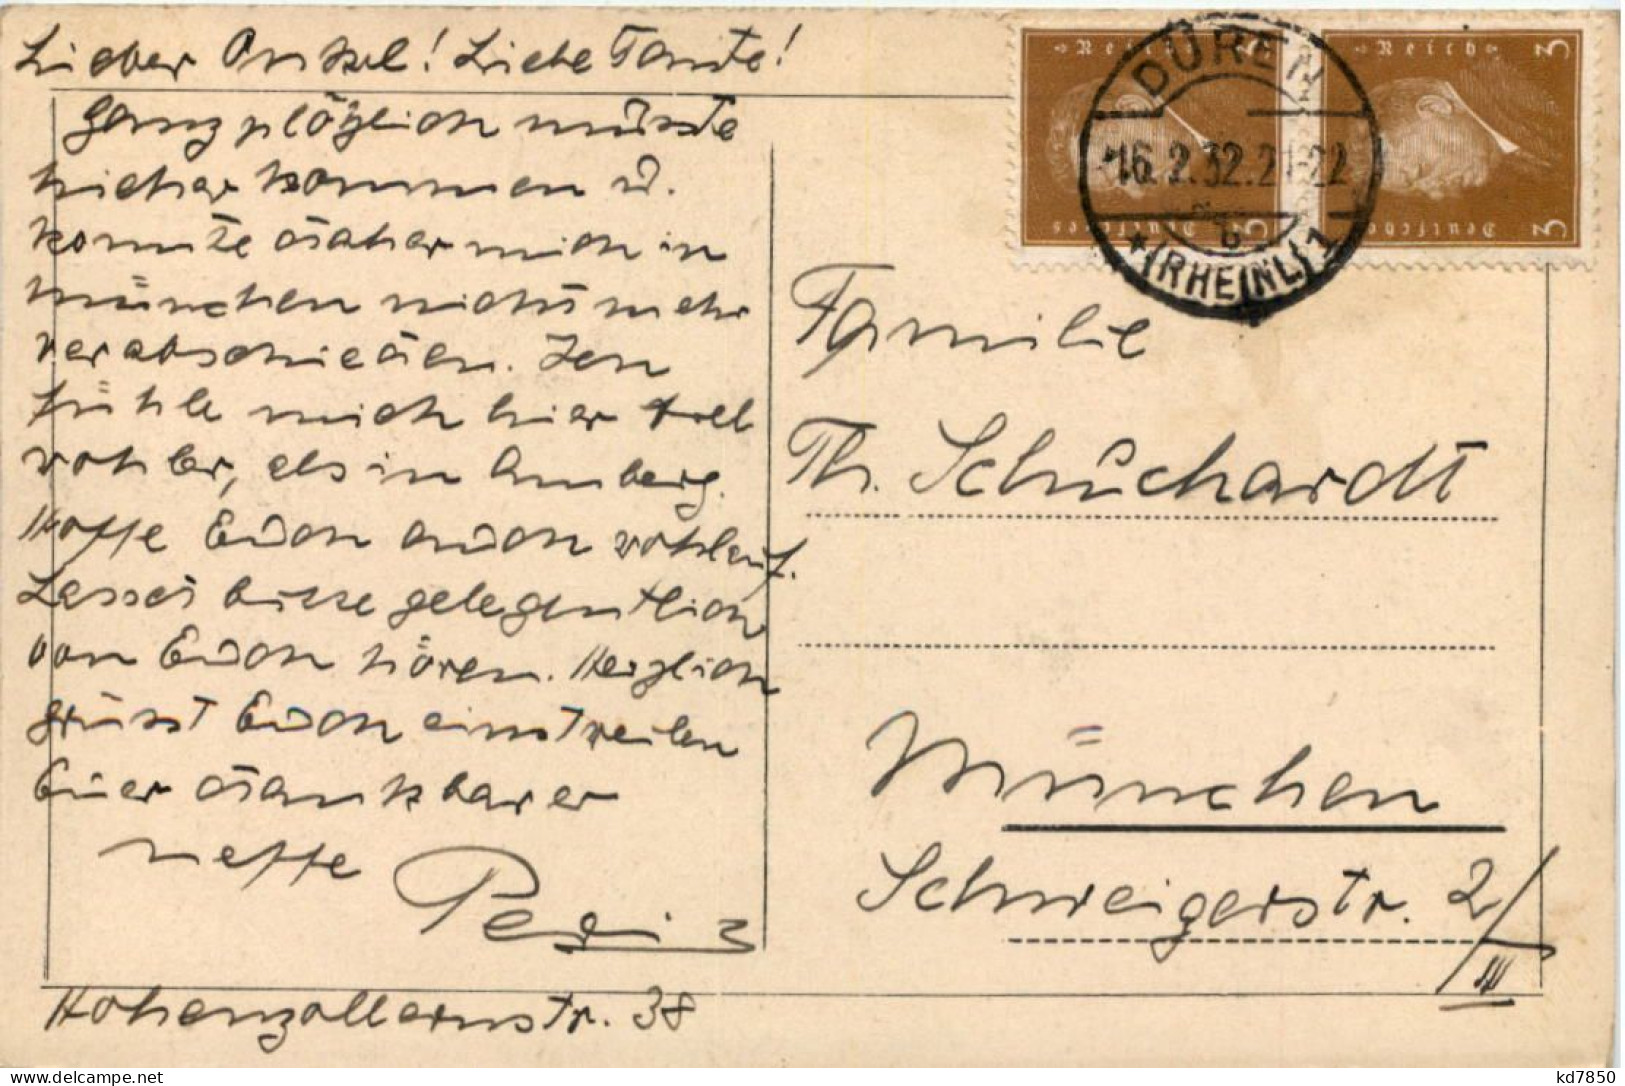 Lieber Onkel! Liebe Tante!
Ganz plötzlich müsste
hierher kommen u.
konnte daher mich in
München nicht mehr
verabschieden. Ich
fühle mich hier viel
wohler, als in Amberg.
Hoffe Euch auch wohlauf.
Lasset bitte gelegentlich
von Euch hören. Herzlich
grüsst Euch einstweilen
Euer dankbarer
Neffe
Hohenzollernstr. 38
Deutsches Reich 3
Deutsches Reich 3
DÜREN
16.2.32.21-22
b
★ (RHEINL) 1
Familie
Th. Schuchardt
München
Schweigerstr. 2/III
kd7850